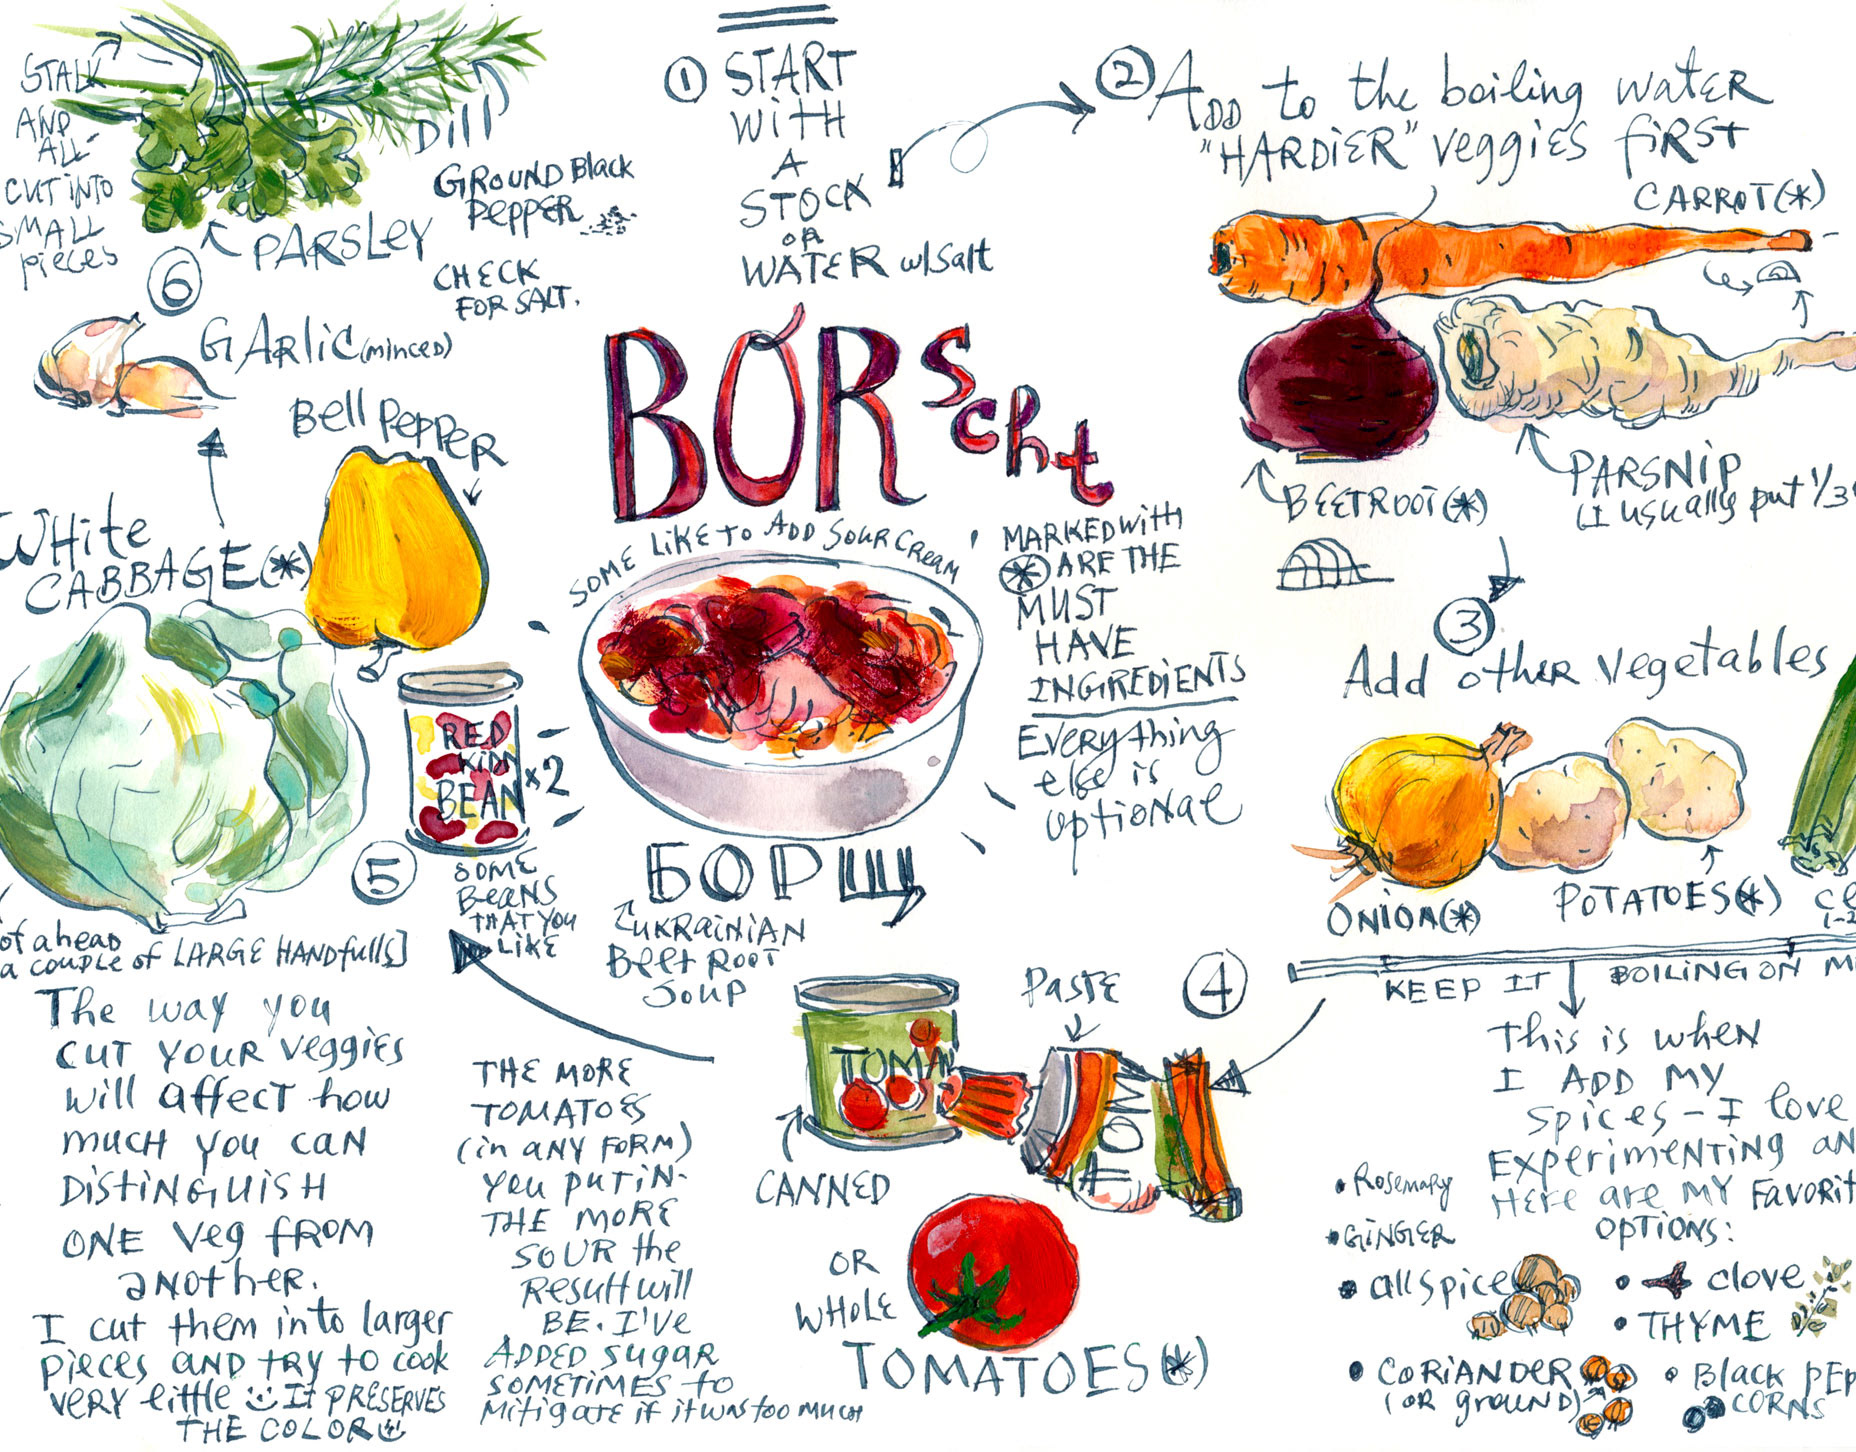 BORscht
SOME LIKE TO ADD SOUR CREAM
БОРЩ
UKRAINIAN
BEET ROOT
SOUP
MARKED with
(*) ARE THE
MUST
HAVE
INGREDIENTS
Everything
else is
optional
1 START
WITH
A
STOCK
OR
WATER w/salt
2 ADD to the boiling water
"HARDIER" veggies first
CARROT(*)
BEETROOT(*)
PARSNIP
(I usually put 1/3
3
Add other vegetables
ONION(*)
POTATOES(*)
KEEP IT BOILING ON
This is when
I ADD MY
SPICES - I love
EXPERIMENTING
HERE are MY
OPTIONS:
• Rosemary
• GINGER
• allspice
• clove
• THYME
• CORIANDER
(OR ground)
• Black
CORNS
4
PASTE
TOMA
TOM
CANNED
OR
WHOLE
TOMATOES(*)
THE MORE
TOMATOES
(in ANY FORM)
you PUT IN-
THE MORE
SOUR the
RESULT will
BE. I'VE
ADDED sugar
SOMETIMES to
Mitigate if it was too much
5
White
CABBAGE(*)
Bell PEPPER
RED
KIDN
BEAN
x2
SOME
BEANS
THAT YOU
LIKE
of a head
a couple of LARGE HANDfulls]
The way you
CUT YOUR veggies
will affect how
much you can
DISTINGUISH
ONE veg FROM
another.
I cut them into larger
pieces AND try to cook
very little IT PRESERVES
THE COLOR
6
STALK
AND
ALL-
CUT INTO
SMALL
pieces
Dill
PARSLEY
GROUND Black
PEPPER
CHECK
FOR SALT.
GARLIC (MINCED)